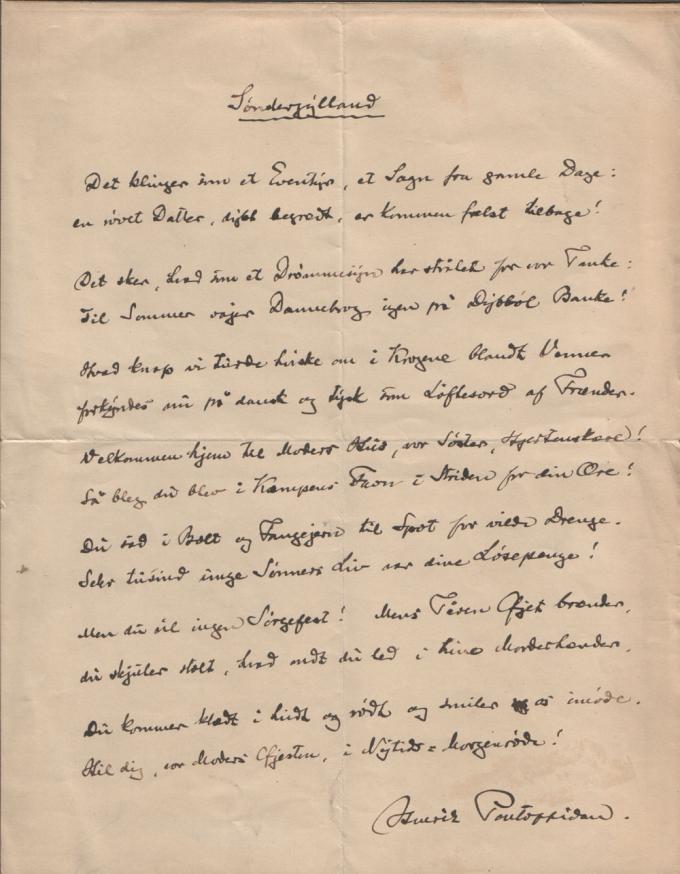 Sønderjylland
Det klinger som et Eventyr, et Sagn fra gamle Dage:
en røvet Datter, dybt begrædt, er kommen frelst tilbage!
Det sker, hvad som et Drømmesyn har strålet for vor Tanke:
til Sommer vajer Dannebrog igen på Dybbøl Banke!
Hvad knap vi turde hviske om i Krogene blandt Venner
forkyndes nu på dansk og tysk som Løftesord af Frænder.
Velkommen hjem til Moders Hus, vor Søster, Hjertenskære!
Så bleg du blev i Kampens Favn i Striden for din Ære!
Du sad i Bolt og Fangejern til Spot for vilde Drenge.
Seks tusind unge Sønners Liv var dine Løsepenge!
Men du vil ingen Sørgefest! Mens Tåren Øjet brænder,
du skjuler stolt, hvad ondt du led i hine Morderhænder.
Du kommer klædt i hvidt og rødt og smiler os imøde.
Hil dig, vor Moders Øjesten, i Nytids=Morgenrøde!
Henrik Pontoppidan.